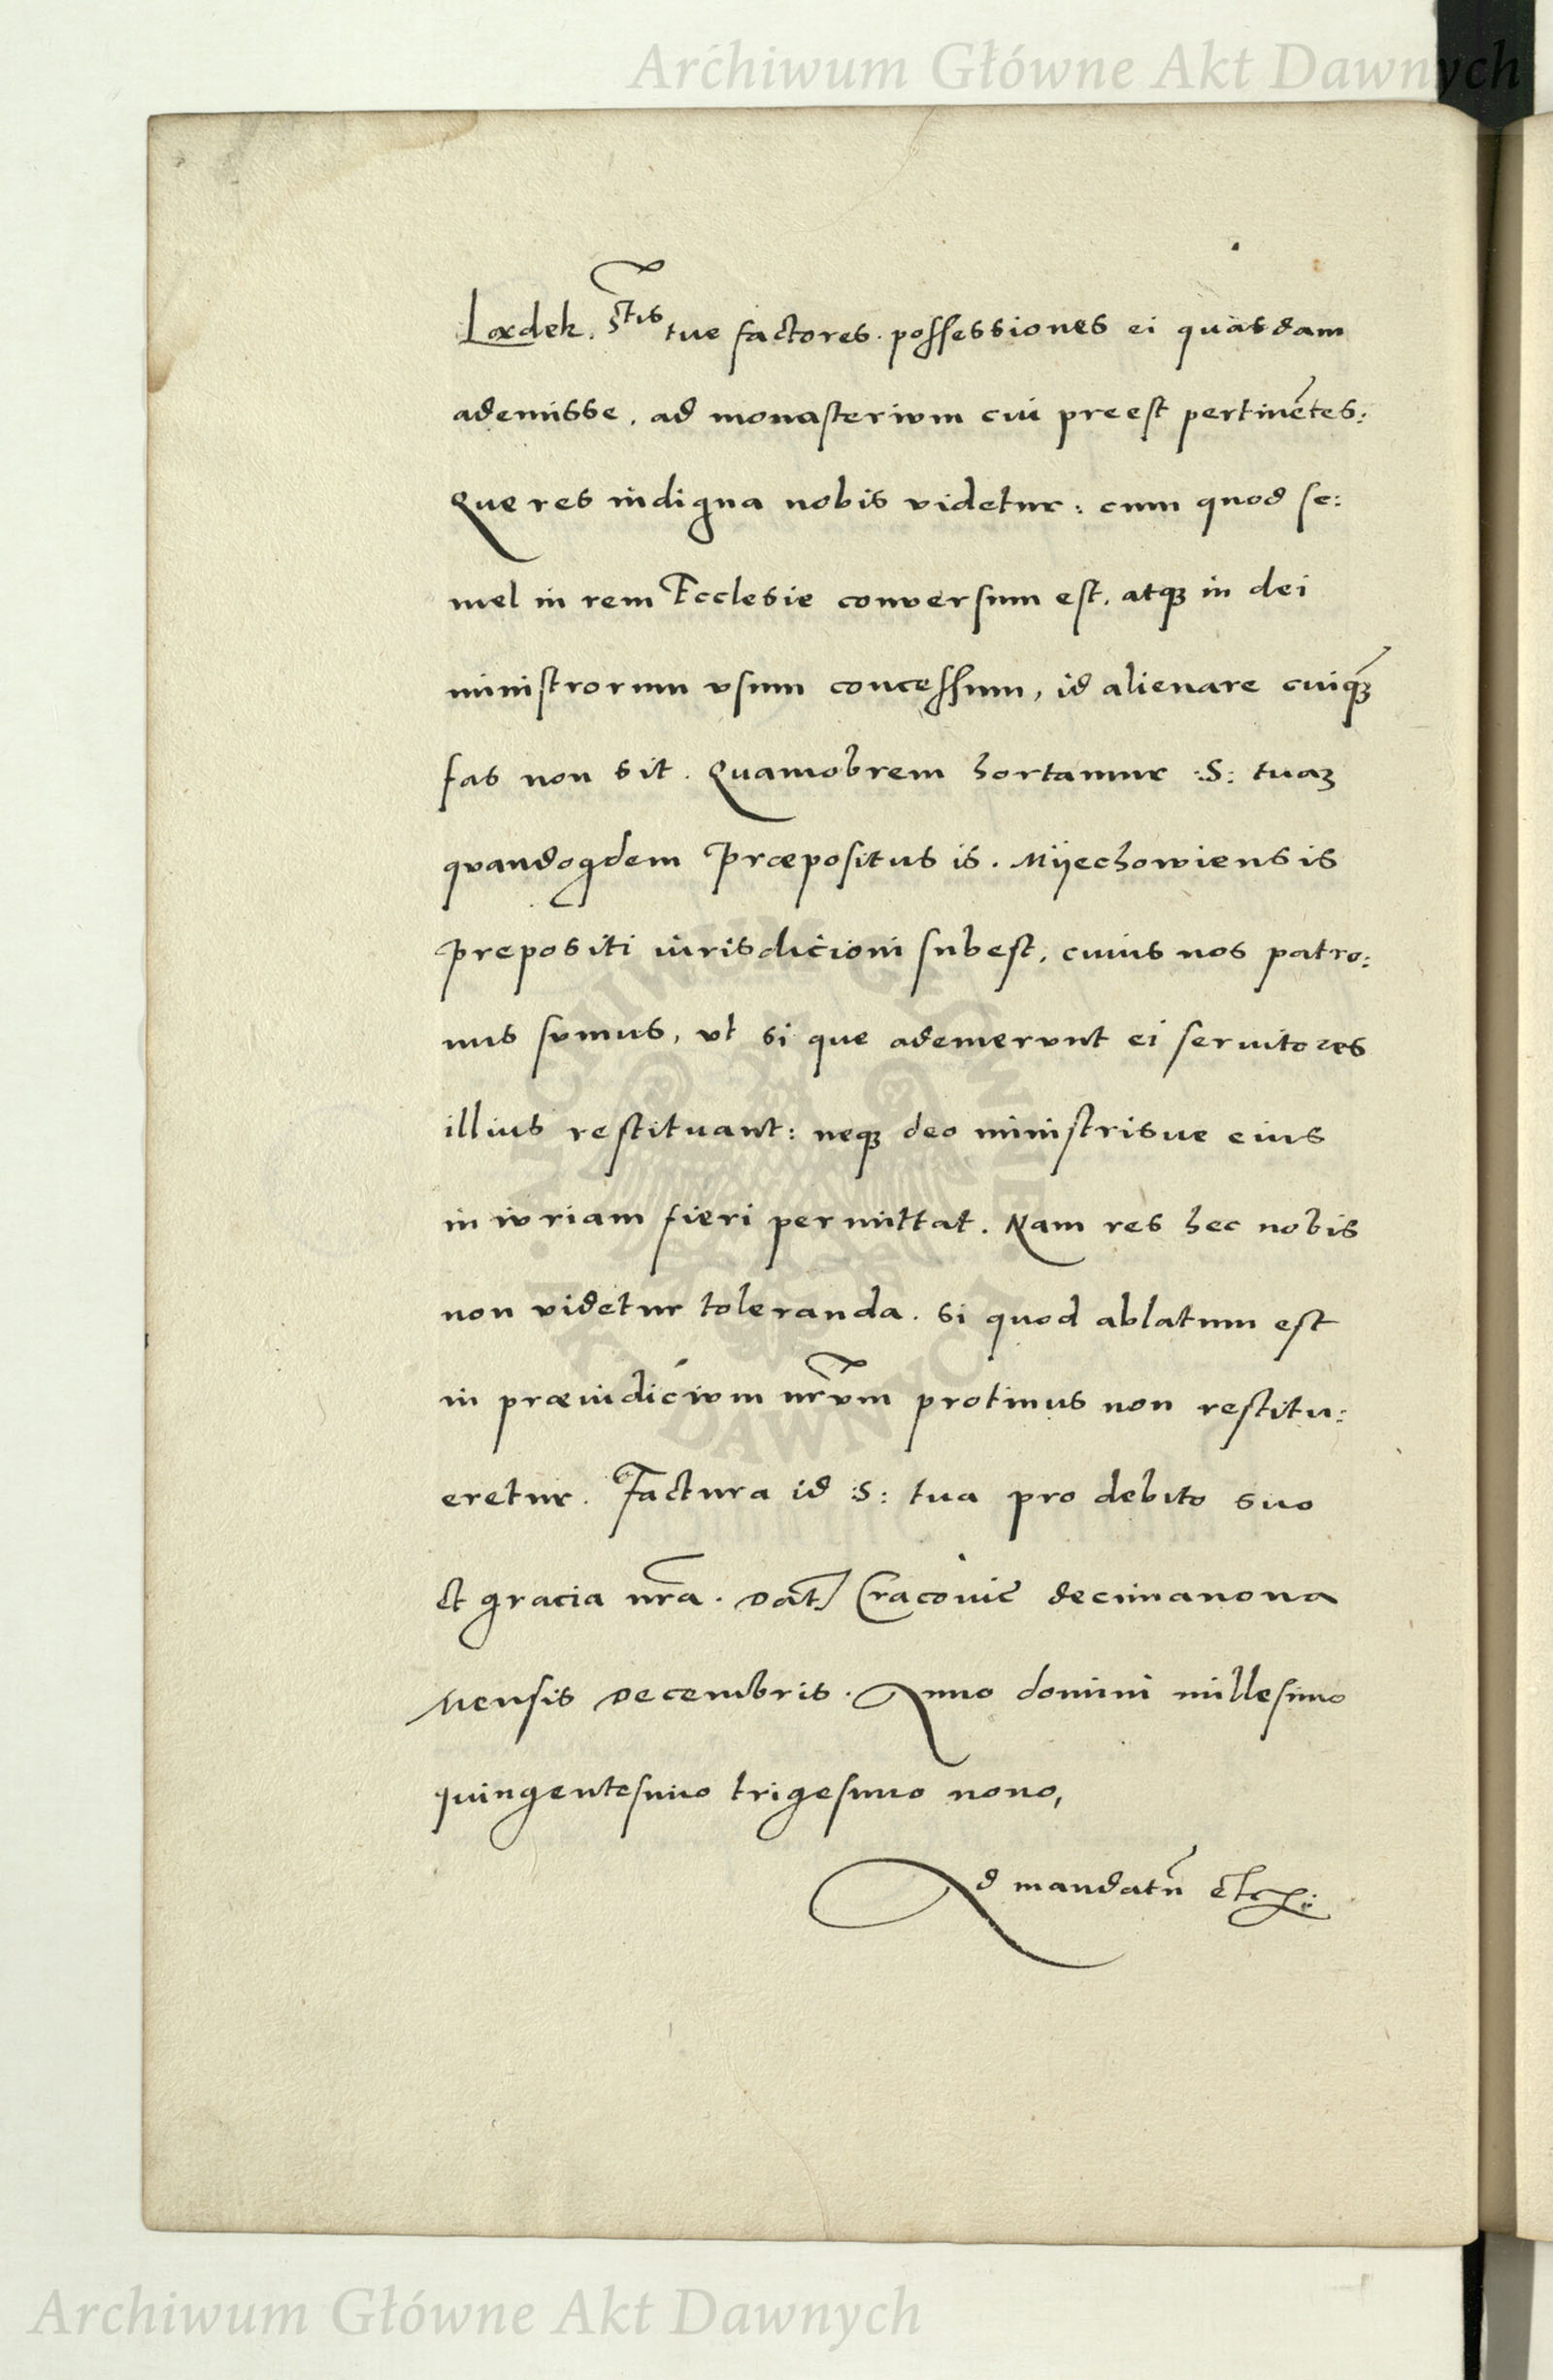 Archiwum Główne Akt Dawnych
Lædek. S̃tis tue factores. possessiones ei quasdam
ademisse, ad monasterium cui preest pertinẽtes:
Que res indigna nobis videtur: cum quod se:
mel in rem Ecclesie conversum est, atqꝫ in dei
ministrorum vsum concessum, id alienare cuiqꝫ̃
fas non sit. Quamobrem hortamur :S: tuaꝫ
quandoqdem Præpositus is. Mijechowiensis
prepositi iurisdicioni subest, cuius nos patro:
nus sumus, vt si que ademerunt ei seruitores
illius restituant: neqꝫ deo ministrisue eius
iniuriam fieri permittat. Nam res hec nobis
non videtur toleranda. Si quod ablatum est
in præiudicium nr̃vm protinus non restitu:
eretur. Factura id :S: tua pro debito suo
et gracia nr̃a. Dat̃ Cracovie decimanona
Mensis Decembris. Anno domini millesimo
quingentesimo trigesimo nono,
Ad mandatũ etc:
ARCHIWUM GŁÓWNE AKT DAWNYCH
Archiwum Główne Akt Dawnych